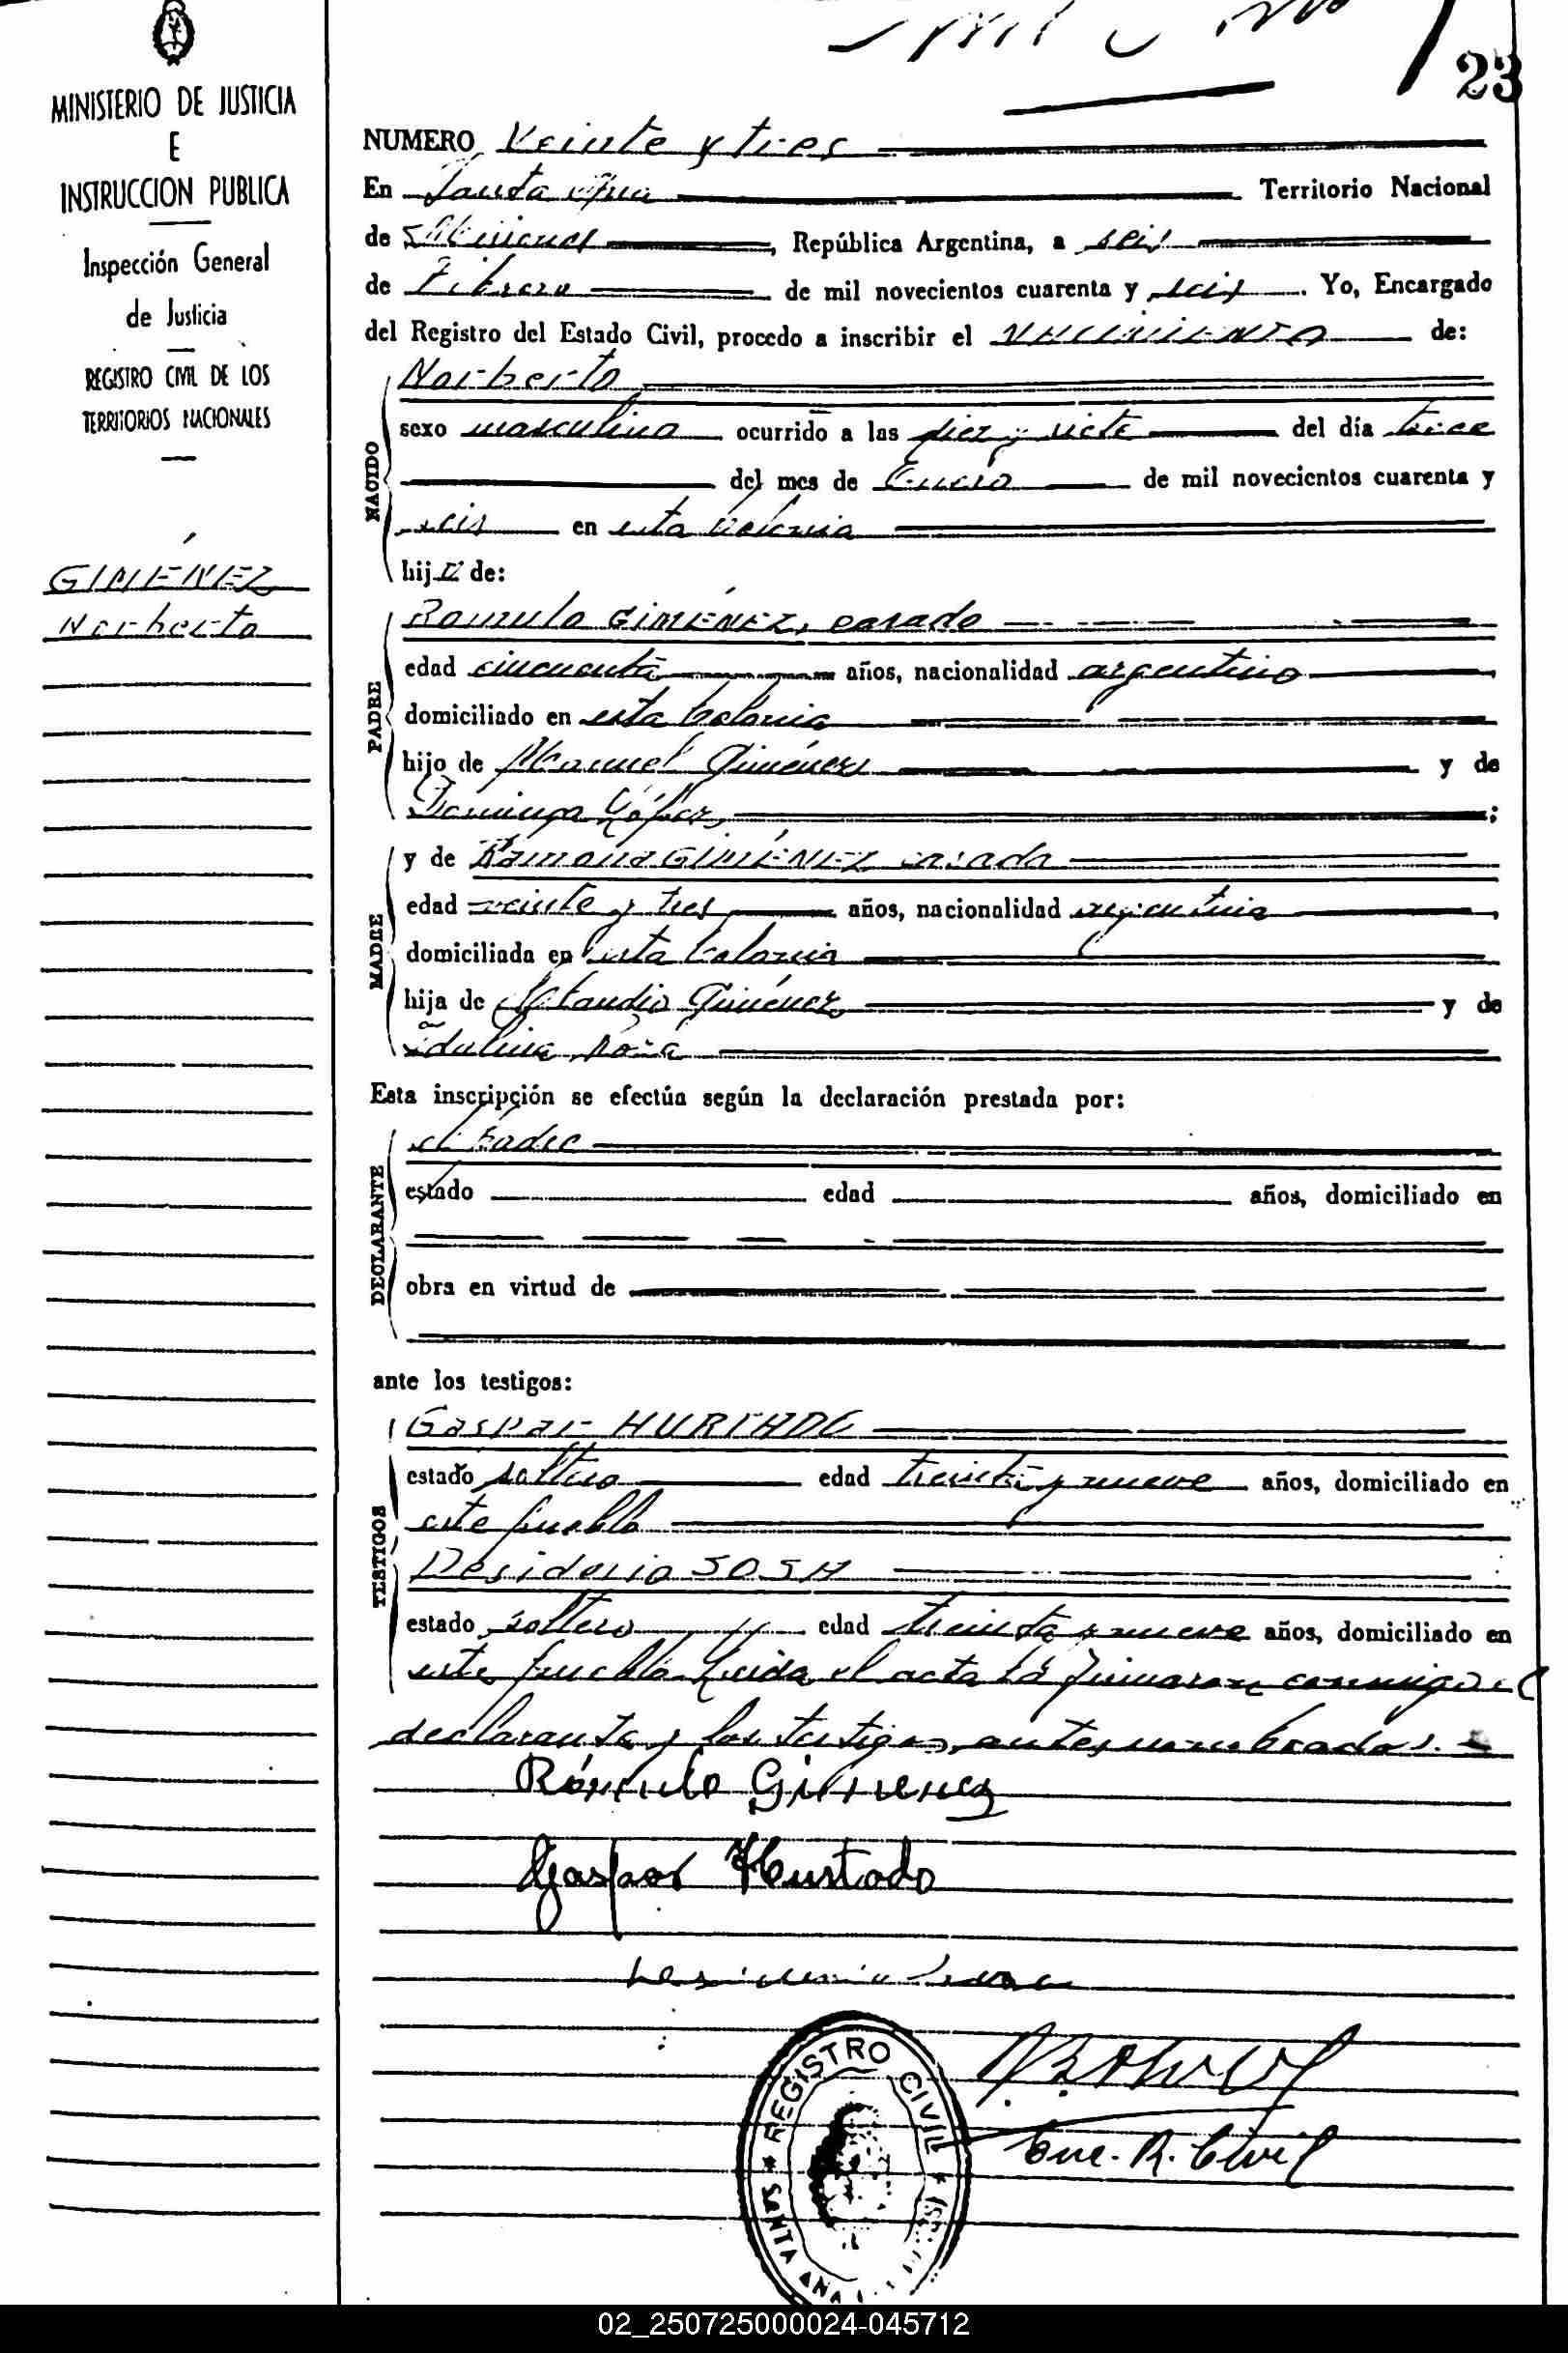 23
MINISTERIO DE JUSTICIA
E
INSTRUCCION PUBLICA
Inspección General
de Justicia
REGISTRO CIVIL DE LOS
TERRITORIOS NACIONALES
GIMÉNEZ
Norberto
NUMERO Veinte y tres
En Santa Ana Territorio Nacional
de Misiones, República Argentina, a seis
de Febrero de mil novecientos cuarenta y seis. Yo, Encargado
del Registro del Estado Civil, procedo a inscribir el nacimiento de:
NACIDO
Norberto
sexo masculino ocurrido a las diez y siete del día trece
del mes de Enero de mil novecientos cuarenta y
seis en esta Colonia
hijo de:
PADRE
Romulo GIMÉNEZ, casado
edad cincuenta años, nacionalidad argentino,
domiciliado en esta Colonia
hijo de Manuel Giménez y de
Dominga López;
MADRE
y de Ramona GIMÉNEZ casada
edad veinte y tres años, nacionalidad argentina,
domiciliada en esta Colonia
hija de Claudio Giménez y de
Idulina
Esta inscripción se efectúa según la declaración prestada por:
DECLARANTE
el Padre
estado edad años, domiciliado en
obra en virtud de
ante los testigos:
TESTIGOS
Gaspar HURTADO
estado soltero edad treinta y nueve años, domiciliado en
este pueblo
Desiderio SOSA
estado soltero edad treinta y nueve años, domiciliado en
este pueblo Leida el acta la firmaron conmigo el
declarante y los testigos antes nombrados.
Rómulo Gimenez
Gaspar Hurtado
Enc. R. Civil
REGISTRO CIVIL
SANTA ANA
02_250725000024-045712